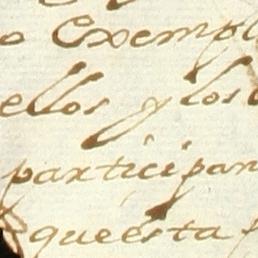 o Exempl
ellos y los
participan
que esta